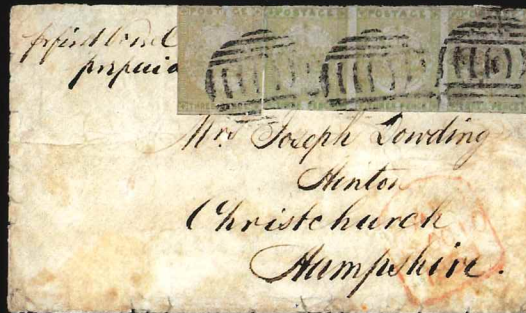 POSTAGE POSTAGE POSTAGE
prepaid
Mrs Joseph Dowding
Hinton
Christchurch
Hampshire.